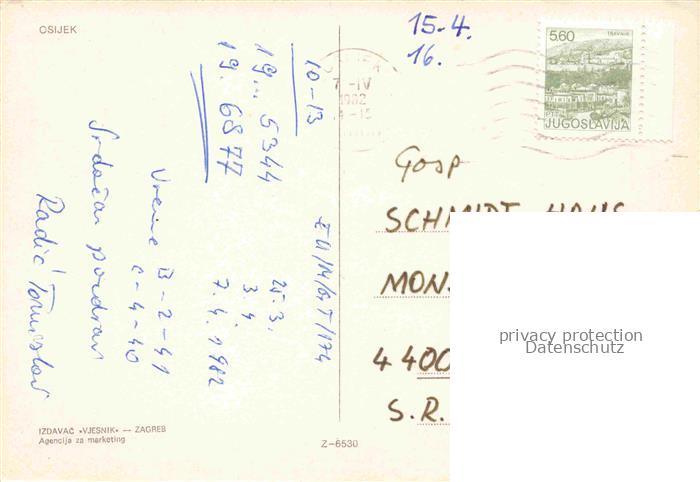 OSIJEK
15-4.
16.
5.60
TRAVNIK
PTT
JUGOSLAVIJA
7.-IV
1982
10-13
19... 5344
19. 6877
EU/14/GT/174
25.3.
3.4.
7.4.1982
Vreme B-2-41
C-4-40
Srdačan pozdrav
Radić Tomislav
Gosp
SCHMIDT HANS
MON
4400
S.R.
privacy protection
Datenschutz
IZDAVAČ »VJESNIK« — ZAGREB
Agencija za marketing
Z-6530